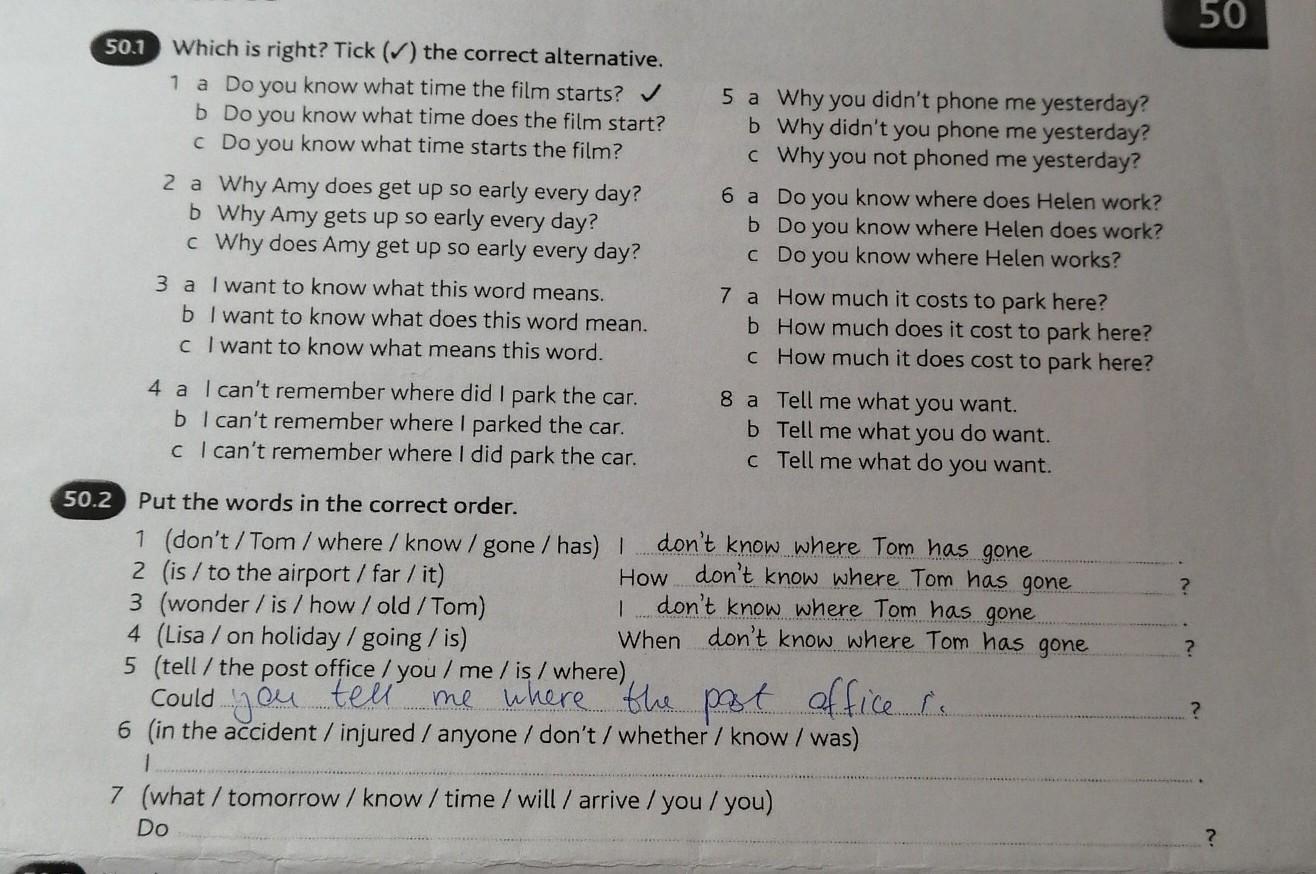 50
50.1 Which is right? Tick (✓) the correct alternative.
1 a Do you know what time the film starts? ✓
b Do you know what time does the film start?
c Do you know what time starts the film?
2 a Why Amy does get up so early every day?
b Why Amy gets up so early every day?
c Why does Amy get up so early every day?
3 a I want to know what this word means.
b I want to know what does this word mean.
c I want to know what means this word.
4 a I can't remember where did I park the car.
b I can't remember where I parked the car.
c I can't remember where I did park the car.
5 a Why you didn't phone me yesterday?
b Why didn't you phone me yesterday?
c Why you not phoned me yesterday?
6 a Do you know where does Helen work?
b Do you know where Helen does work?
c Do you know where Helen works?
7 a How much it costs to park here?
b How much does it cost to park here?
c How much it does cost to park here?
8 a Tell me what you want.
b Tell me what you do want.
c Tell me what do you want.
50.2 Put the words in the correct order.
1 (don't / Tom / where / know / gone / has) I don't know where Tom has gone .
2 (is / to the airport / far / it) How don't know where Tom has gone ?
3 (wonder / is / how / old / Tom) I don't know where Tom has gone .
4 (Lisa / on holiday / going / is) When don't know where Tom has gone ?
5 (tell / the post office / you / me / is / where)
Could you tell me where the post office is ?
6 (in the accident / injured / anyone / don't / whether / know / was)
I .
7 (what / tomorrow / know / time / will / arrive / you / you)
Do ?